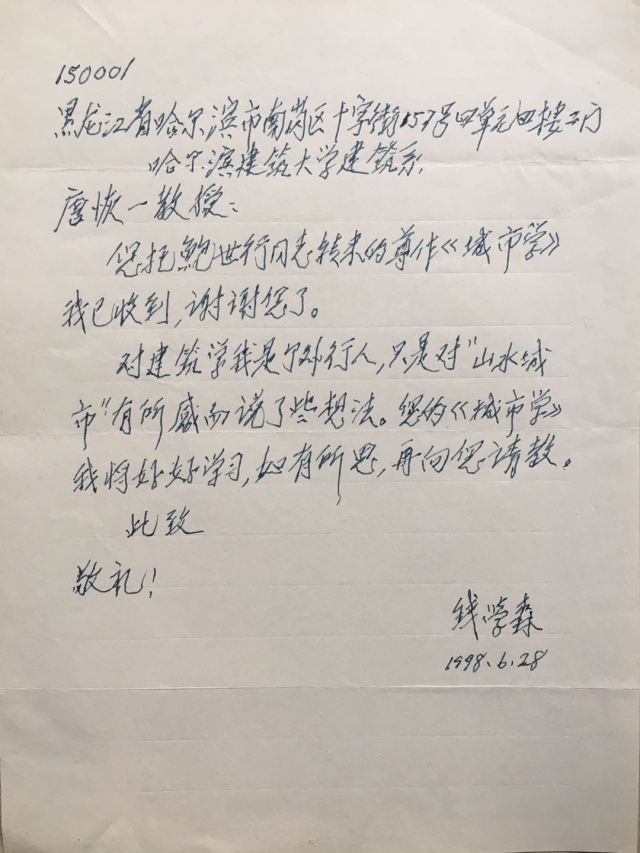 150001
黑龙江省哈尔滨市南岗区十字街157号四单元四楼二门
哈尔滨建筑大学建筑系
唐恢一教授：
您托鲍世行同志转来的尊作《城市学》
我已收到，谢谢您了。
对建筑学我是个外行人，只是对“山水城
市”有所感而说了些想法。您的《城市学》
我将好好学习，如有所思，再向您请教。
此致
敬礼！
钱学森
1998.6.28